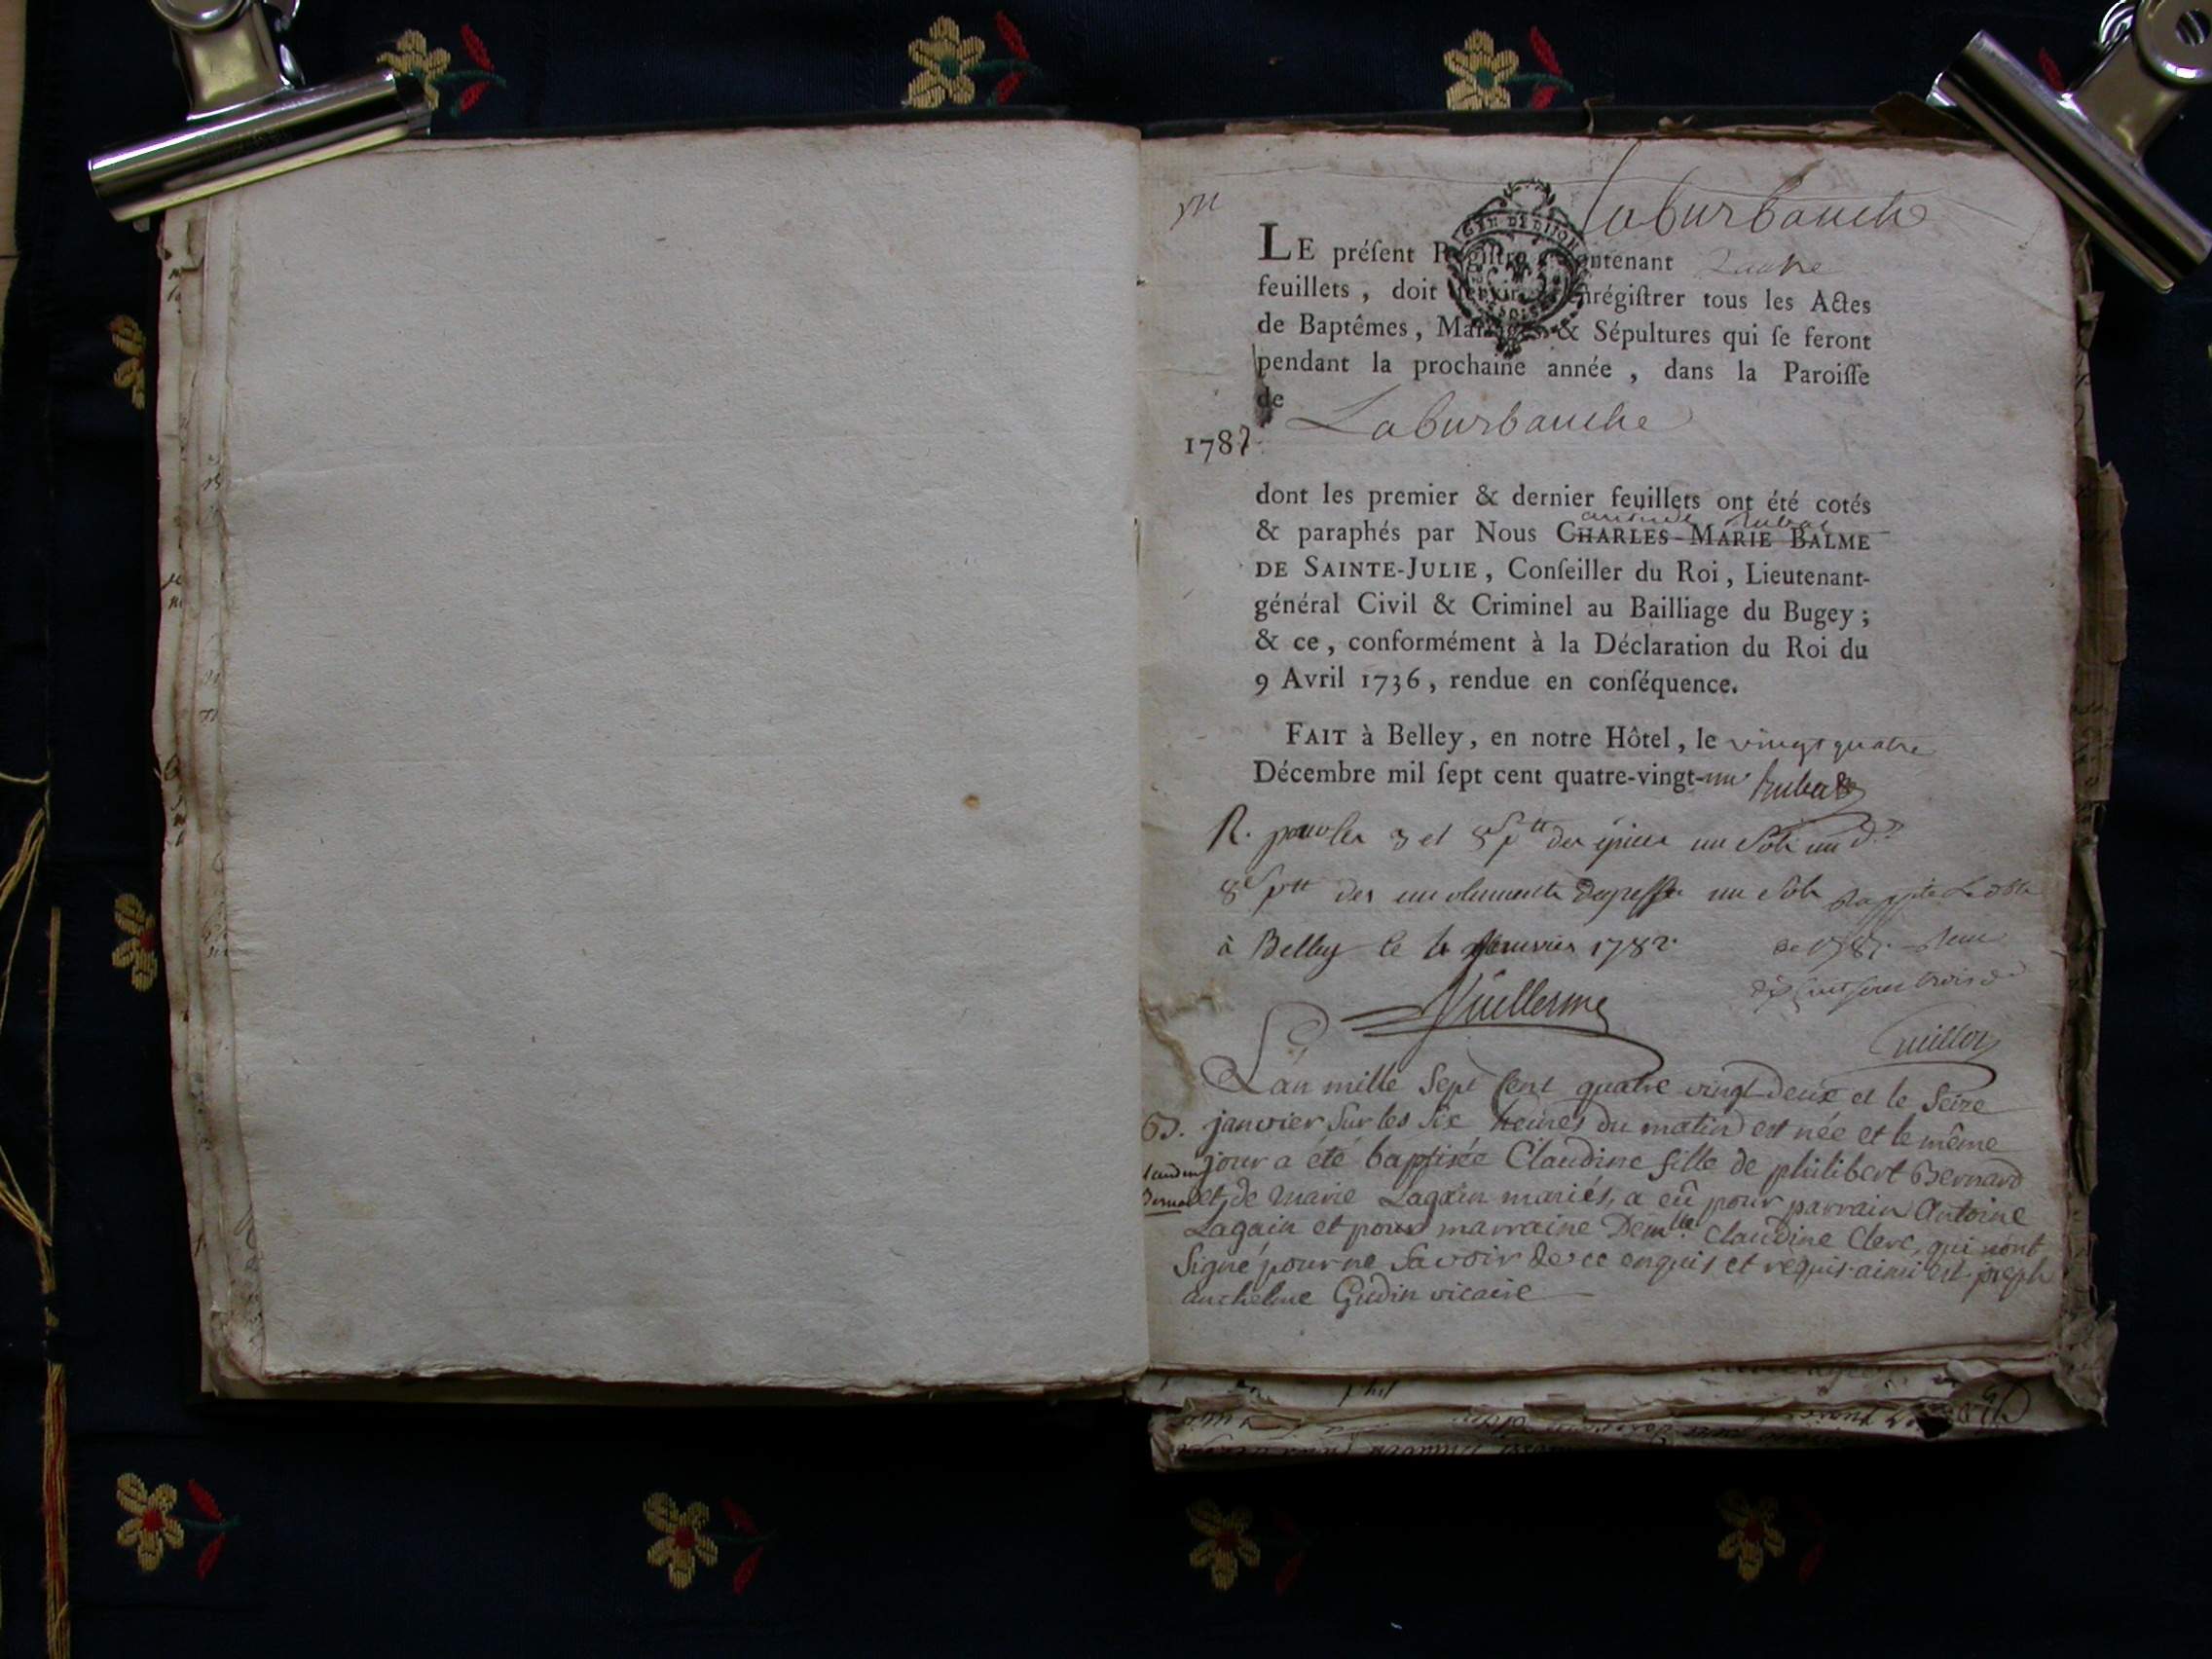 Laburbanche
GEN DE DIJON
LE préſent Regiſtre contenant quatre
feuillets, doit ſervir à enrégiſtrer tous les Actes
de Baptêmes, Mariages & Sépultures qui ſe feront
pendant la prochaine année, dans la Paroiſſe
de Laburbanche
1782
dont les premier & dernier feuillets ont été cotés
& paraphés par Nous CHARLES-MARIE BALME
DE SAINTE-JULIE, Conſeiller du Roi, Lieutenant-
général Civil & Criminel au Bailliage du Bugey;
& ce, conformément à la Déclaration du Roi du
9 Avril 1736, rendue en conſéquence.
FAIT à Belley, en notre Hôtel, le vingt quatre
Décembre mil ſept cent quatre-vingt-un Rubat
R. pour les 3 et 8 s p tt des un sols un d
8 s p tt des emoluments un sols
à Belley le janvier 1782.
Vuillerme
L'an mille sept cent quatre vingt deux et le seize
janvier sur les six heures du matin est née et le même
jour a été baptisée Claudine fille de philibert Bernard
et de marie Lagain mariés, a eû pour parrain Antoine
Lagain et pour marraine Demlle Claudine Clerc, qui n'ont
Signé pour ne Savoir de ce enquis et requis. ainsi est. joseph
anthelme Gudin vicaire